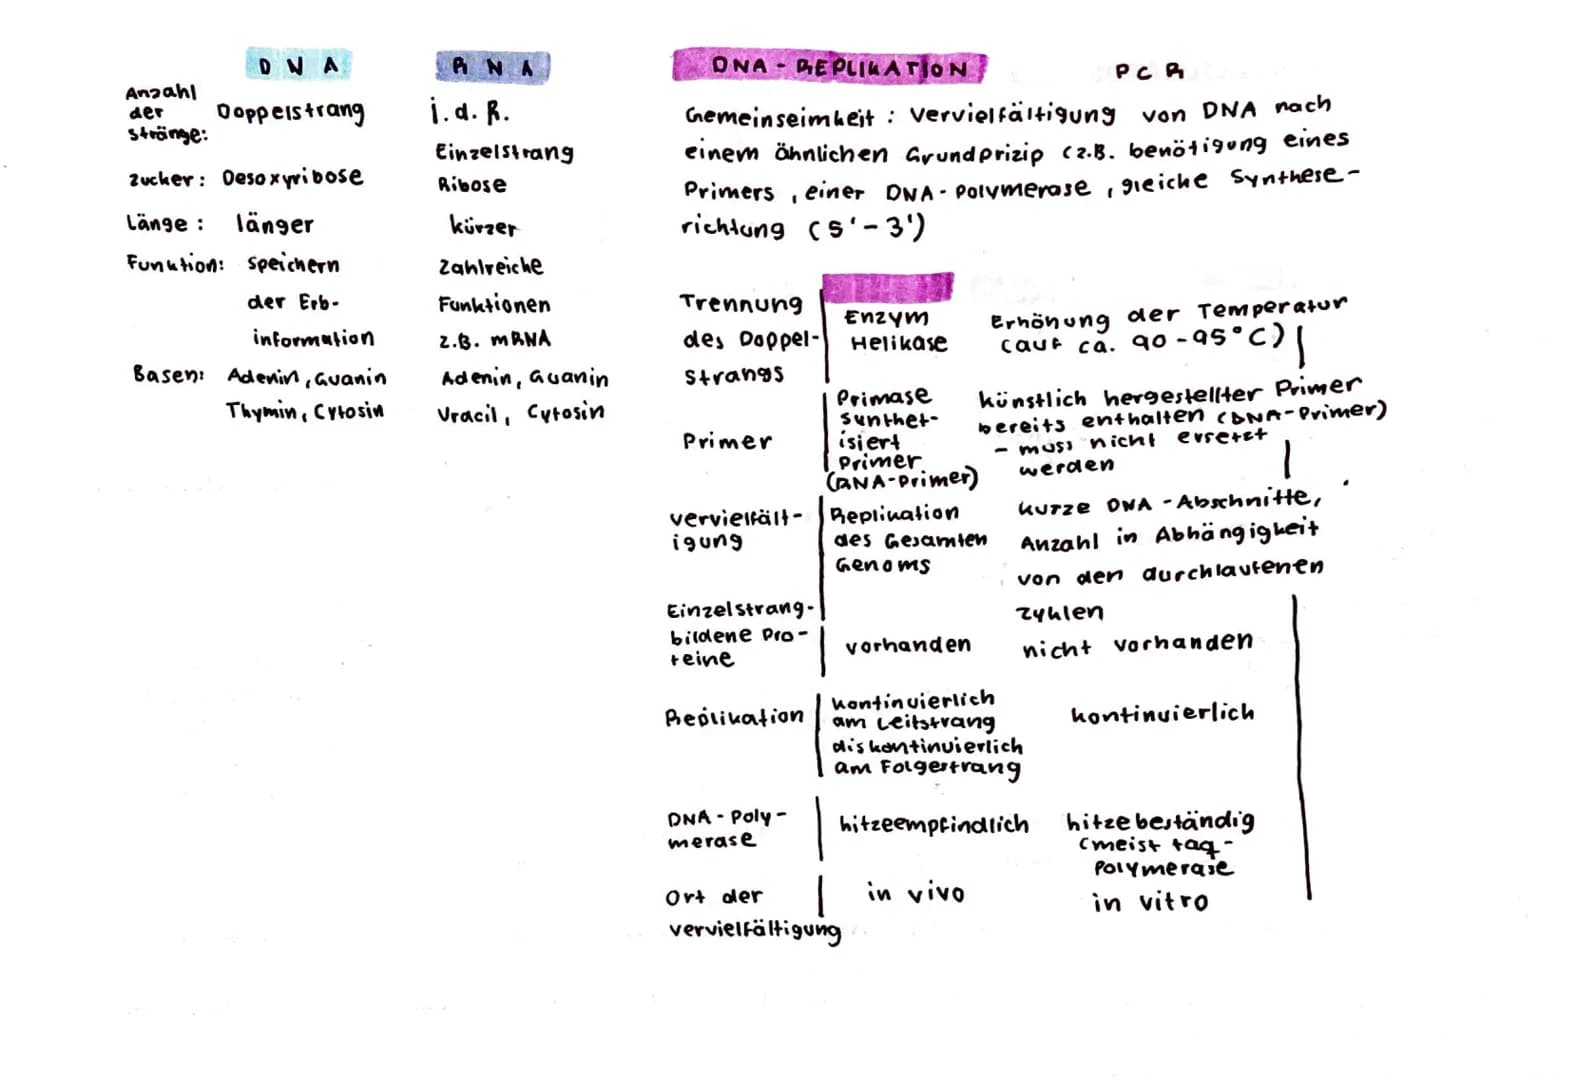 DNA RNA
Anzahl der Stränge: Doppelstrang i.d.R. Einzelstrang
Zucker: Desoxyribose Ribose
Länge: länger kürzer
Funktion: Speichern der Erb-information Zahlreiche Funktionen z.B. mRNA
Basen: Adenin, Guanin Adenin, Guanin
Thymin, Cytosin Uracil, Cytosin
DNA-REPLIKATION PCR
Gemeinseimkeit: Vervielfältigung von DNA nach
einem ähnlichen Grundprizip (z.B. benötigung eines
Primers, einer DNA-Polymerase, gleiche Synthese-
richtung (5'-3')
Trennung des Doppel-Strangs Enzym Helikase Erhönung der Temperatur (auf ca. 90-95°C)
Primer Primase synthet-isiert Primer (RNA-Primer) künstlich hergestellter Primer bereits enthalten (DNA-Primer) - muss nicht ersetzt werden
vervielfält-igung Replikation des Gesamten Genoms kurze DNA-Abschnitte, Anzahl in Abhängigkeit von den durchlaufenen Zyklen
Einzelstrang-bildene Pro-teine vorhanden nicht vorhanden
Replikation kontinuierlich am Leitstrang diskontinuierlich am Folgestrang kontinuierlich
DNA-Poly-merase hitzeempfindlich hitzebeständig (meist taq-Polymerase
Ort der vervielfältigung in vivo in vitro